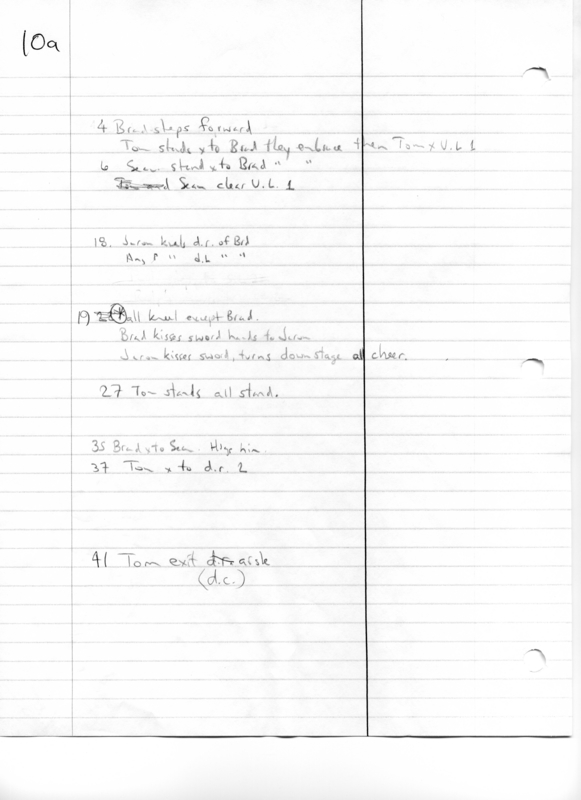 10a
4 Brad steps forward
Tom stands x to Brad they embrace then Tom x U.L 1
6 Sean stand x to Brad " "
Sean clear U.L. 1
18. Jaron kneels d.r. of Brd
Amy " d.L " "
19 all kneel except Brad.
Brad kisses sword hands to Jaron
Jaron kisses sword, turns down stage all cheer.
27 Tom stands all stand.
35 Brad x to Sean. Hugs him
37 Tom x to d.r. 2
41 Tom exit aisle
(d.c.)